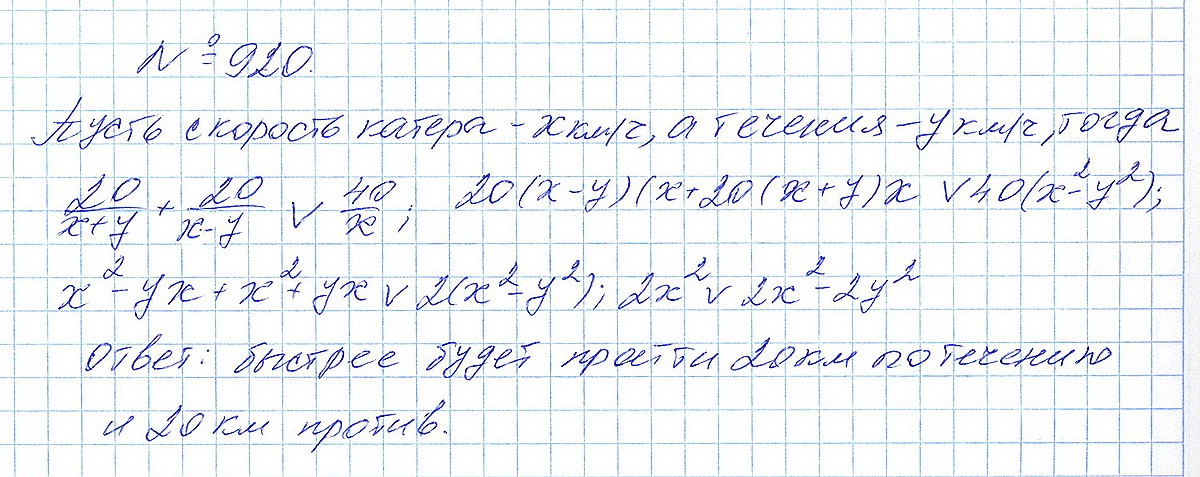 № 920.
Пусть скорость катера - x км/ч, а течения - y км/ч, тогда
20/(x+y) + 20/(x-y) ∨ 40/x; 20(x-y)(x+20(x+y)x ∨ 40(x²-y²);
x²-yx+x²+yx ∨ 2(x²-y²); 2x² ∨ 2x²-2y²
Ответ: быстрее будет пройти 20 км по течению
и 20 км против.